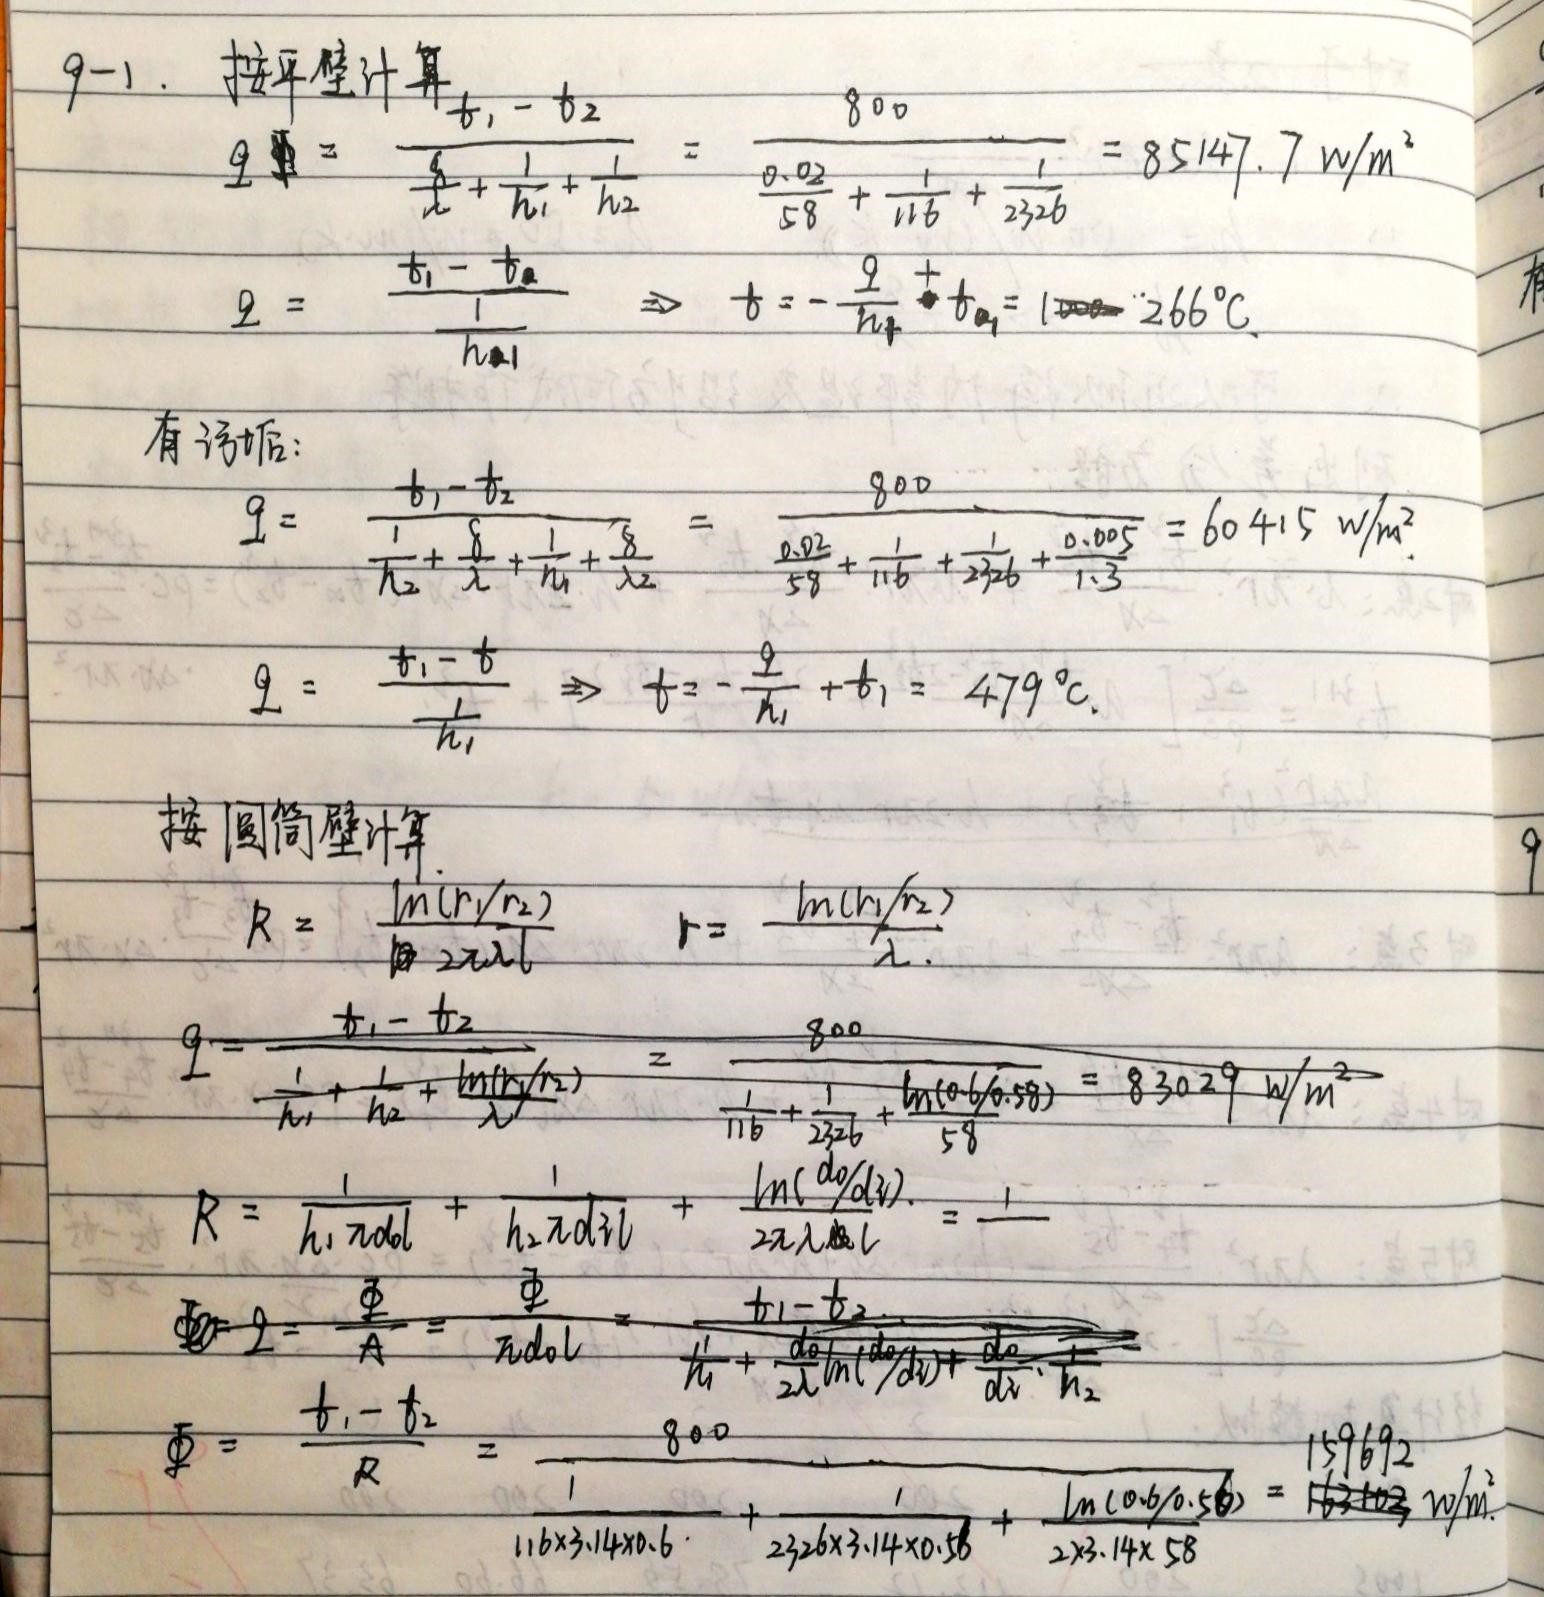 9-1. 按平壁计算
q = (t₁ - t₂)/(δ/λ + 1/h₁ + 1/h₂) = 800/(0.02/58 + 1/116 + 1/2326) = 85147.7 W/m²
q = (t₁ - t)/(1/h₁) ⇒ t = -q/h₁ + t₁ = 266℃.
有污垢:
q = (t₁ - t₂)/(1/h₂ + δ/λ + 1/h₁ + δ/λ₂) = 800/(0.02/58 + 1/116 + 1/2326 + 0.005/1.3) = 60415 W/m².
q = (t₁ - t)/(1/h₁) ⇒ t = -q/h₁ + t₁ = 479℃.
按圆筒壁计算.
R = ln(r₁/r₂)/(2πλl) r = ln(r₁/r₂)/λ.
q = (t₁ - t₂)/(1/h₁ + 1/h₂ + ln(r₁/r₂)/λ) = 800/(1/116 + 1/2326 + ln(0.6/0.58)/58) = 83029 W/m²
R = 1/(h₁πdol) + 1/(h₂πdil) + ln(do/di)/(2πλl) = 1/
q = Φ/A = Φ/(πdol) = (t₁ - t₂)/(1/h₁ + do/2λ ln(do/di) + do/di · 1/h₂)
Φ = (t₁ - t₂)/R = 800/(1/(116×3.14×0.6) + 1/(2326×3.14×0.56) + ln(0.6/0.56)/(2×3.14×58)) = 159692 W/m².